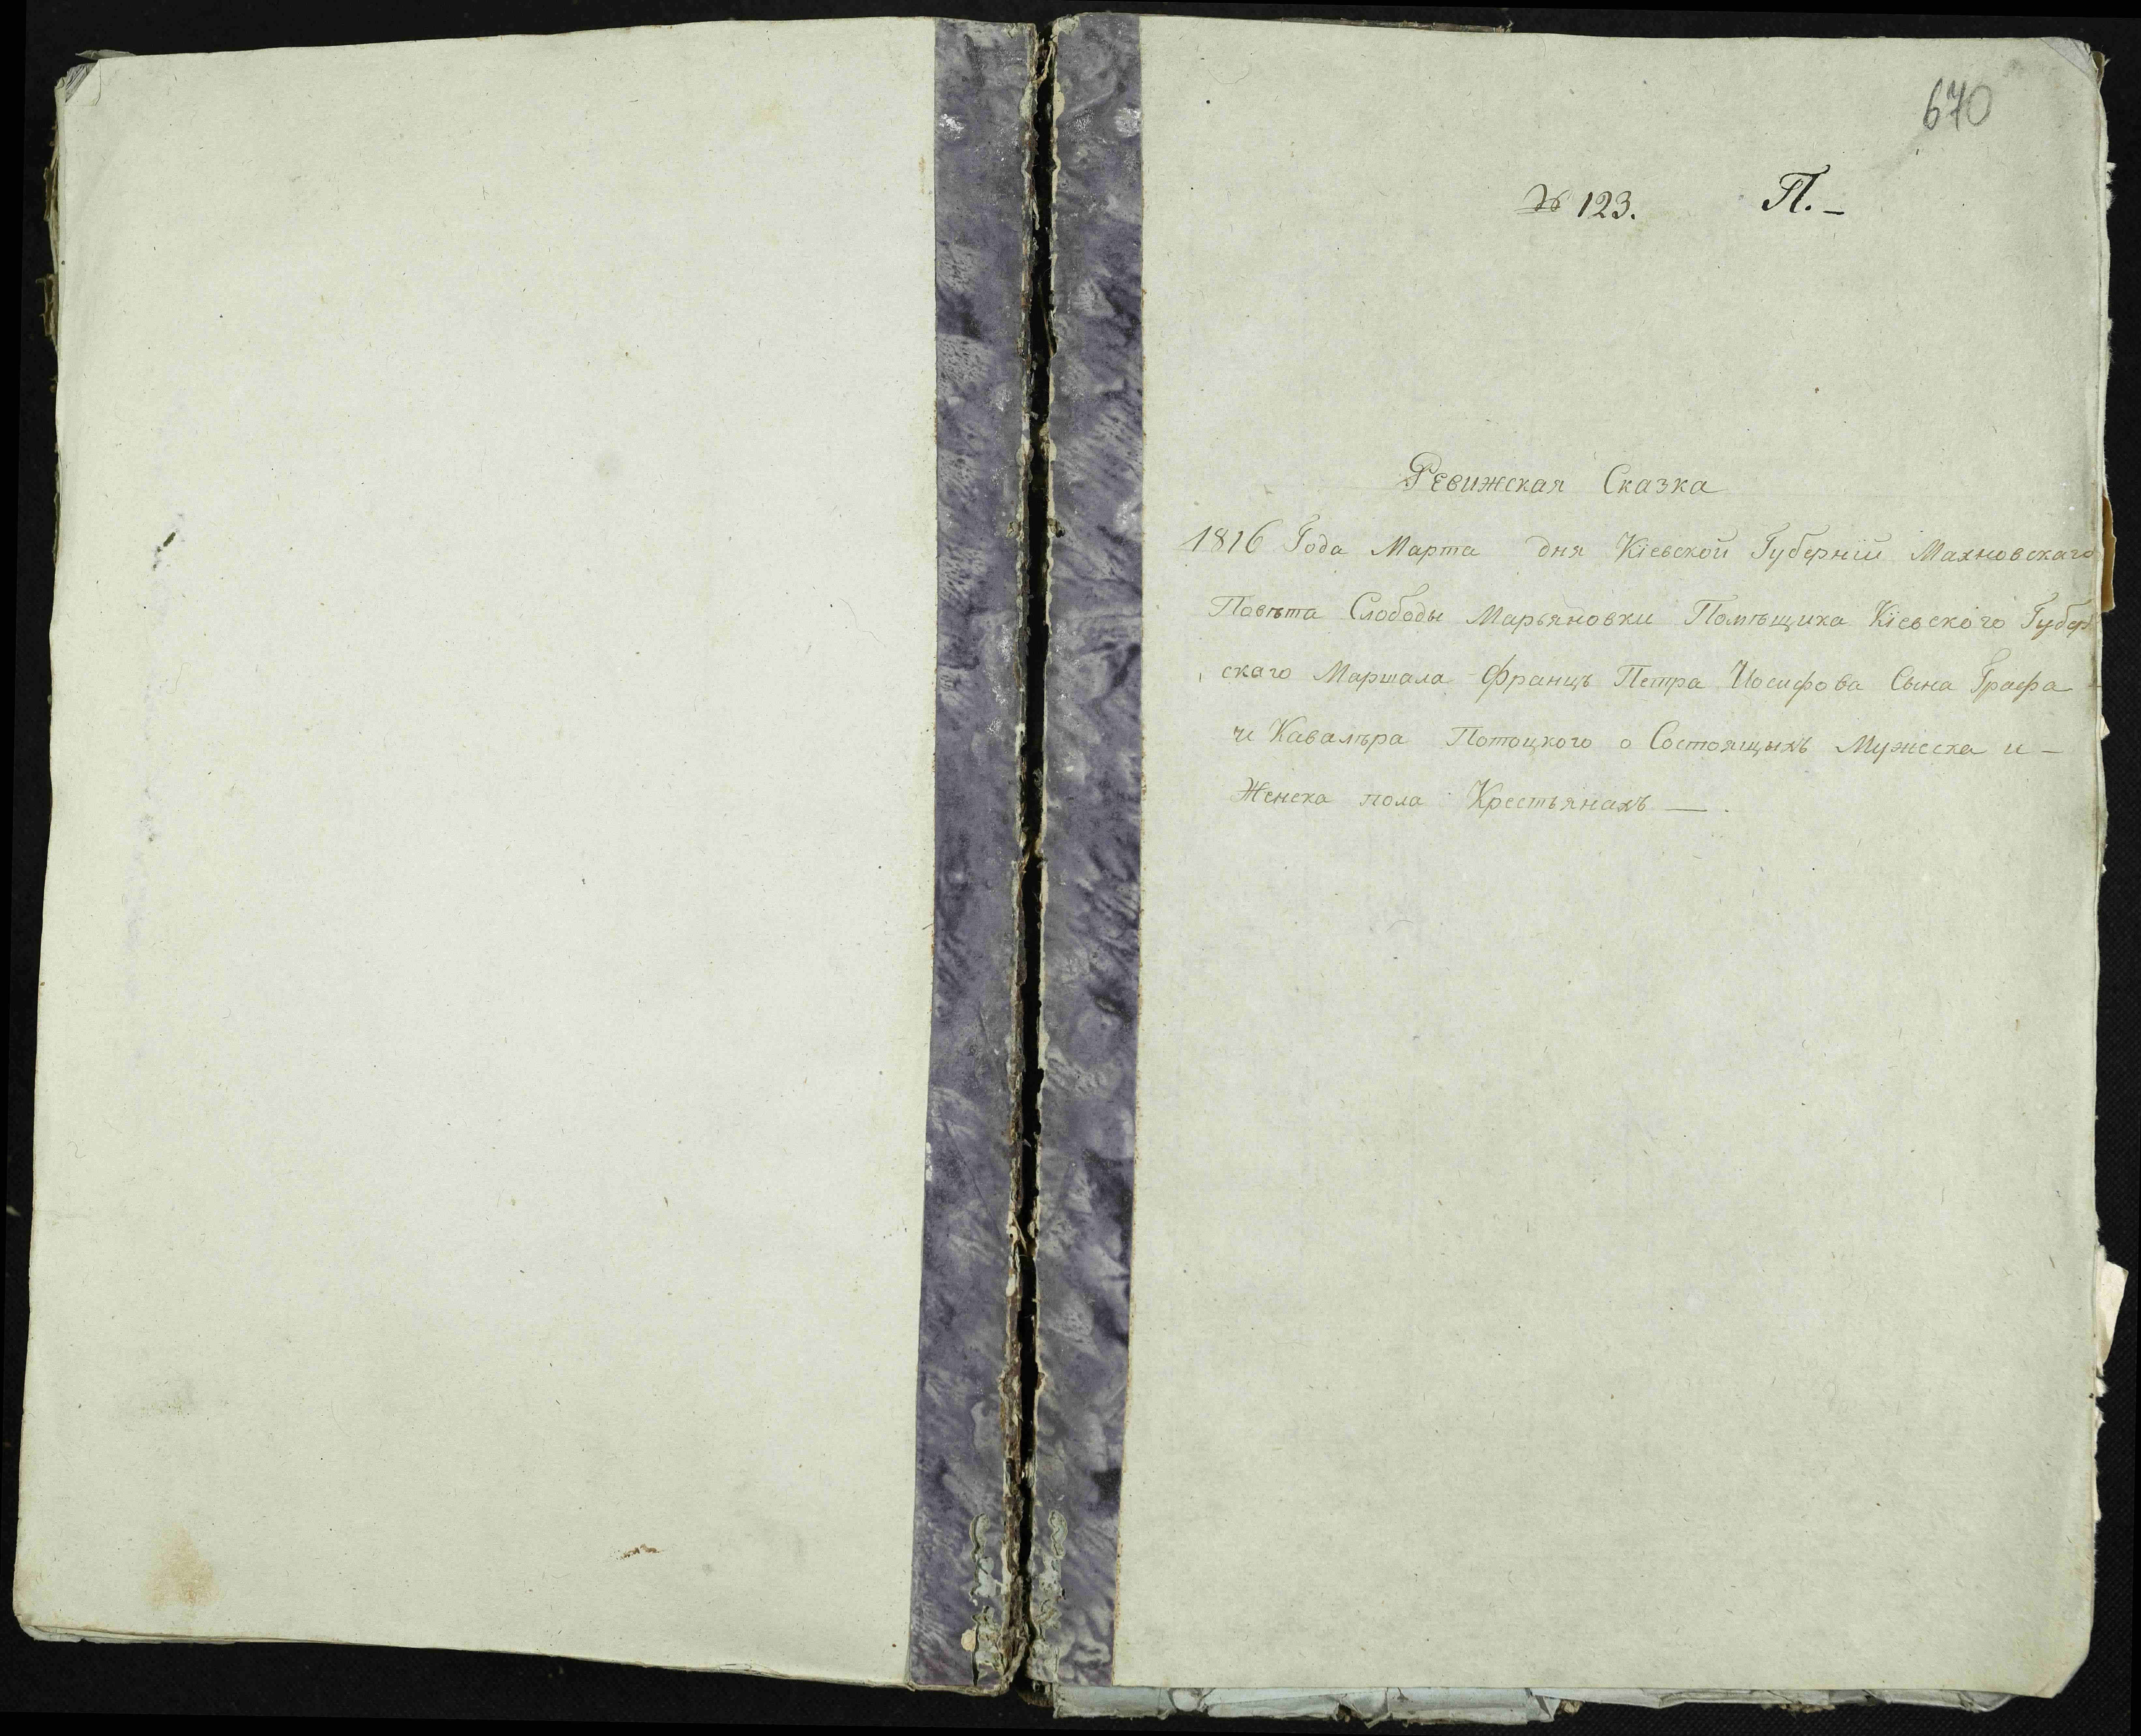 670
№ 123. П.-
Ревижская Сказка
1816 Года Марта дня Кіевской Губерніи Махновскаго
Повѣта Слободы Марьяновки Помѣщика Кіевского Губер
скаго Маршала Францъ Петра Иосифова Сына Графа
и Кавалѣра Потоцкого о Состоящыхъ Мужеска и -
Женска пола Крестьянахъ — .